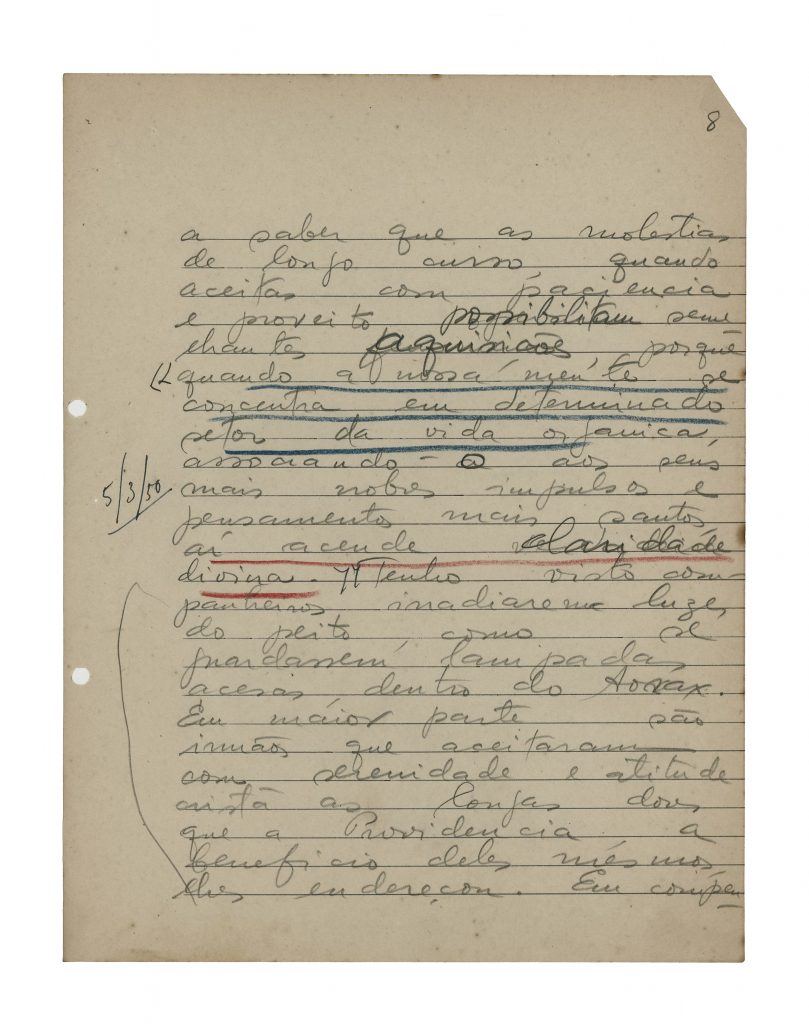 8
a saber que as molestias
de longo curso, quando
aceitas com paciencia
e proveito possibilitam seme
lhantes aquisicões, porquê
quando a nossa mente se
concentra em determinado
setor da vida organica,
associando-o aos seus
5/3/50
mais nobres impulsos e
pensamentos mais santos,
aí acende claridade
divina. Tenho visto com-
panheiros irradiarem luzes
do peito, como se
guardassem lampadas
acesas dentro do torax.
Em maior parte são
irmãos que aceitaram
com serenidade e atitude
cristã as longas dores
que a Providencia a
beneficio deles mesmos
lhes endereçou. Em compen